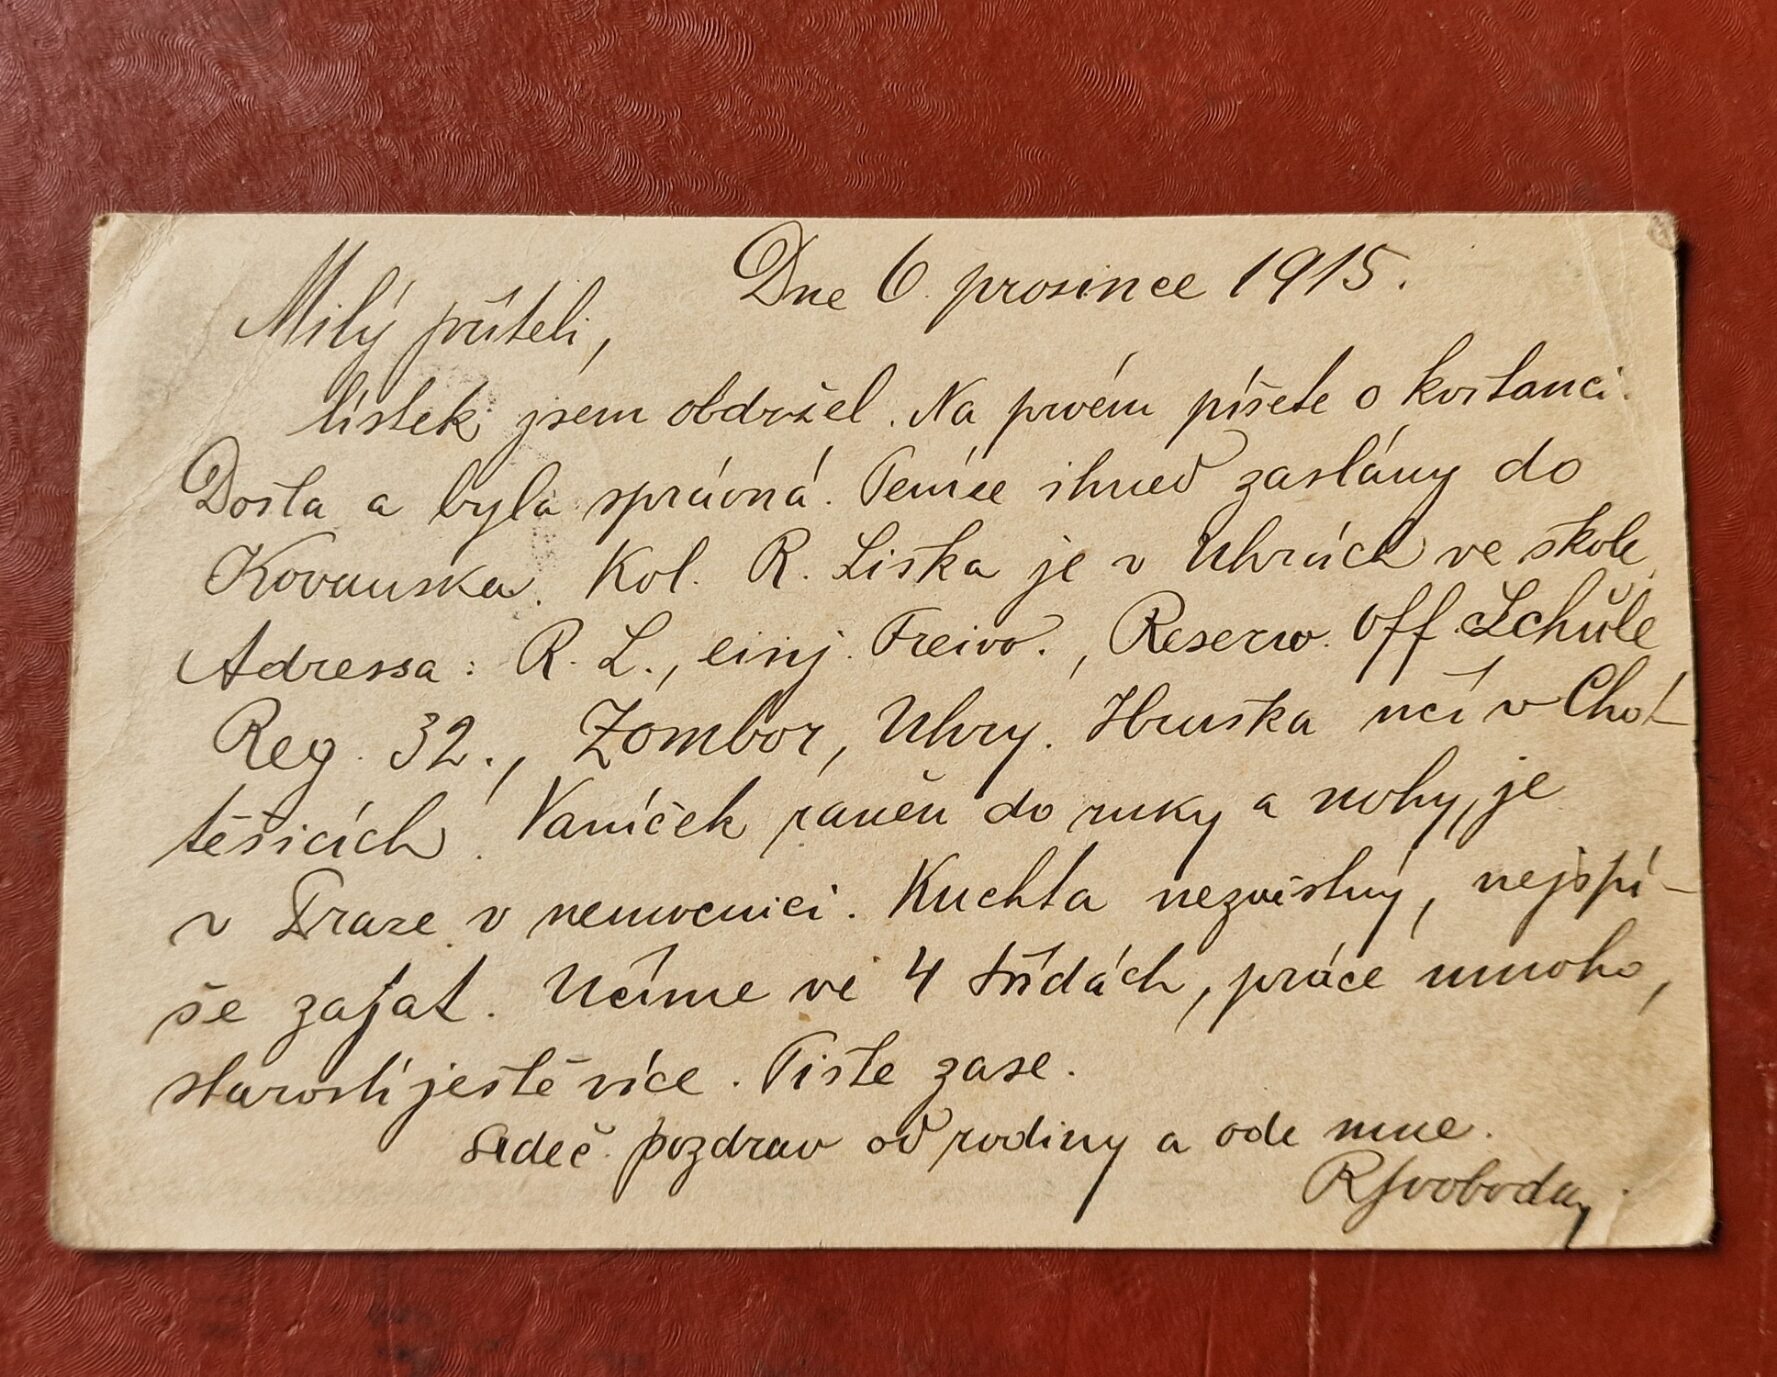 Dne 6. prosince 1915.
Milý příteli,
lístek jsem obdržel. Na prvém píšete o kvitanci.
Došla a byla správná. Peníze ihned zaslány do
Kovanska. Kol. R. Liška je v Uhrách ve škole.
Adressa: R. L., einj. Freiw., Reserv. Off. Schule
Reg. 32., Zombor, Uhry. Hruška učí v Chot-
těšicích. Vaníček raněn do ruky a nohy, je
v Praze v nemocnici. Kuchta nezvěstný, nejspí-
še zajat. Učíme ve 4 třídách, práce mnoho,
starostí ještě více. Pište zase.
Srdeč. pozdrav od rodiny a ode mne.
RSvoboda